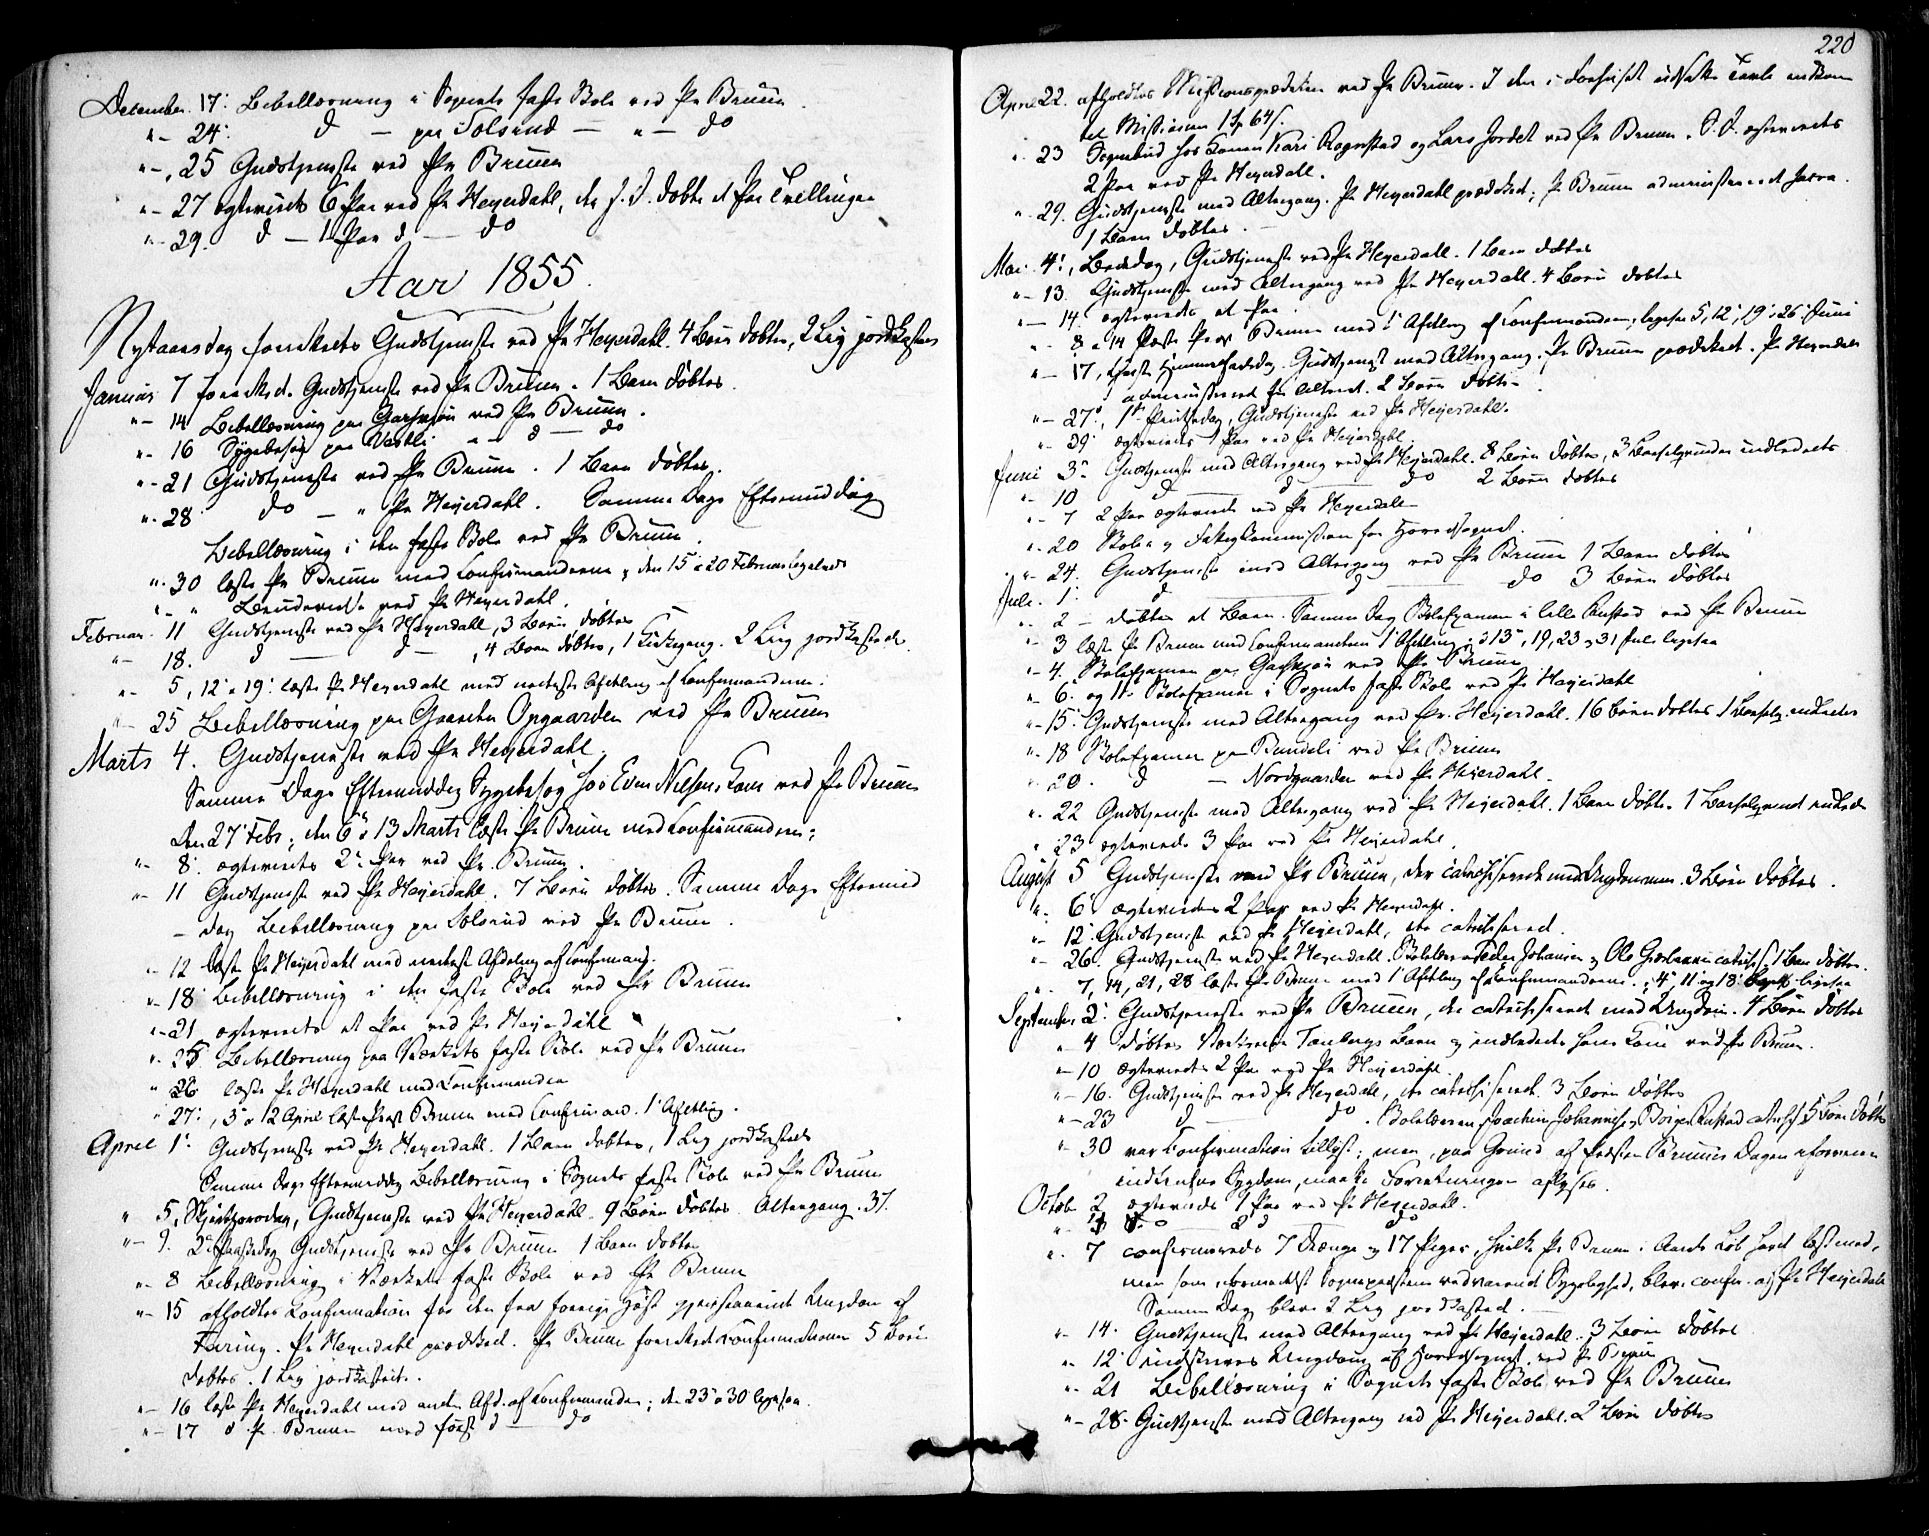 December 17. Bibellæsning i Sognets faste Skole ved Pr Bruun
"– 24. d – paa Solsrud – "– do
"– 25 Gudstjeneste ved Pr Bruun
"– 27 ægteviedes 6 Par ved Pr Heyerdahl, der døbte et Par Tvillinger
"– 29. d – 1 Par d – do
Aar 1855.
Nytaarsdag forrettedes Gudstjeneste ved Pr Heyerdahl. 4 Børn døbtes, 2 Lig jordkastes
Januar 7 Gudstjeneste ved Pr Bruun. 1 Barn døbtes.
"– 14 Bibellæsning paa ved Pr Bruun.
"– 16 Sygebesøg paa Vestli "– d – do
"– 21 Gudstjeneste ved Pr Bruun. 1 Barn døbtes.
"– 28 do – " Pr Heyerdahl. Samme Dags Eftermiddag
Bibellæsning i den faste Skole ved Pr Bruun.
"– 30 læste Pr Bruun med Confirmanderne, den 15 o 20 Februar ligeledes
"– " ved Pr Heyerdahl.
Februar. 11 Gudstjeneste ved Pr Heyerdahl, 3 Børn døbtes
"– 18. d – d –, 4 Børn døbtes, 1 Kirkegang. 2 Lig jordkastede.
"– 5, 12 o 19. læste Pr Heyerdahl med Afdeling af Confirmanderne.
"– 25 Bibellæsning paa Gaarden Opgaarden ved Pr Bruun
Marts 4. Gudstjeneste ved Pr Heyerdahl.
Samme Dags Eftermiddag Sygebesøg hos Even Nilsens Kone ved Pr Bruun
Den 27 Febr., den 6 o 13 Marts læste Pr Bruun med Confirmanderne.
"– 8. ægteviedes 2 Par ved Pr. Bruun.
"– 11 Gudstjeneste ved Pr Heyerdahl. 7 Børn døbtes. Samme Dags Eftermid
– dag Bibellæsning paa Solsrud ved Pr Bruun.
"– 12 læste Pr Heyerdahl med Afdeling af Confirmand.
"– 18 Bibellæsning i den faste Skole ved Pr Bruun
"– 21 ægteviedes et Par ved Pr Heyerdahl
"– 25 Bibellæsning paa Værkets faste Skole ved Pr Bruun
"– 26 læste Pr Heyerdahl med Confirmander
"– 27., 3 o 12 April læste Præst Bruun med Confirmand. 1 Afdeling.
April 1. Gudstjeneste ved Pr Heyerdahl. 1 Barn døbtes, 1 Lig jordkastedes
Samme Dags Eftermiddag Bibellæsning i Sognets faste Skole ved Pr Bruun
" 5, Skjærthorsdag, Gudstjeneste ved Pr Heyerdahl. 9 Børn døbtes. Altergang. 37.
"– 9. 2 Paaskedag Gudstjeneste ved Pr Bruun 1 Barn døbtes
"– 8 Bibellæsning i Værkets faste Skole ved Pr Bruun
"– 15 afholdtes Confirmation for den fra forrige Høst Ungdom af
Pr Heyerdahl prædiked. Pr Bruun Confirmationen 5 Børn
døbtes. 1 Lig jordkastedes.
"– 16 læste Pr Heyerdahl med anden Afd. af Confirmander; den 23 o 30 ligesaa.
"– 17 d Pr. Bruun med første d – do
220
April 22. afholdtes Missionsprædiken ved Pr Bruun. I den i udsatte Tavle indkom
til Missionen 1 Sp 64 s.
"– 23 Sognebud hos Konen Kari Rognstad og Lars Jordet ved Pr Bruun. S. D. ægteviedes
2 Par ved Pr Heyerdahl.
"– 29. Gudstjeneste med Altergang. Pr Heyerdahl prædiked; Pr Bruun administrerede Sacra.
1 Barn døbtes.
Mai 4., Bededag, Gudstjeneste ved Pr Heyerdahl. 1 Barn døbtes
"– 13. Gudstjeneste med Altergang ved Pr Heyerdahl. 4 Børn døbtes
"– 14. ægteviedes et Par.
"– 8 o 14 læste Præst Bruun med 1 Afdeling af Confirmanderne; ligesaa 5, 12, 19, 26 Juni
"– 17, Christi Himmelfartsdag. Gudstjenest med Altergang. Pr Bruun prædiked. Pr Heyerdahl
administrerede for Alteret. 2 Børn døbte.
"– 27., 1 Pintsedag, Gudstjeneste ved Pr Heyerdahl.
"– 29. ægteviedes 1 Par ved Pr Heyerdahl.
Juni 3. Gudstjeneste med Altergang ved Pr Heyerdahl. 8 Børn døbtes, 3 Barselqvinder indlededes
"– 10 d – d – do 2 Børn døbtes
"– 7 2 Par ægteviede ved Pr Heyerdahl
"– 20 Skole og Fattigkommission for Hovedsognet.
"– 24. Gudstjeneste med Altergang ved Pr Bruun 1 Barn døbtes
Juli. 1. d – d – do 3 Børn døbtes
"– 2 – døbtes et Barn. Samme Dag Skoleexamen i lille ved Pr Bruun
"– 3 læste Pr Bruun med Confirmanderne 1 Afdeling; o 13, 19, 23 o 31 Juli ligesaa
"– 4. Skoleexamen paa ved Pr Bruun
"– 6. og 11. Skoleexamen i Sognets faste Skole ved Pr Heyerdahl
"– 15. Gudstjeneste med Altergang ved Pr. Heyerdahl. 16 Børn døbtes 1 Barselq. indledes
"– 18 Skoleexamen paa Bundeli ved Pr Bruun
"– 20. d – Nordgaarden ved Pr Heyerdahl.
"– 22 Gudstjeneste med Altergang ved Pr Heyerdahl. 1 Barn døbte. 1 Barselqvind indledes
" 23 ægteviede 3 Par ved Pr Heyerdahl.
August 5 Gudstjeneste ved Pr Bruun, der catechiserede med Ungdommen. 3 Børn døbtes.
"– 6 ægteviedes 2 Par ved Pr Heyerdahl.
"– 12. Gudstjeneste ved Pr Heyerdahl, der catechiserede.
"– 26. Gudstjeneste ved Pr Heyerdahl. Peder Johansen og Ole catechis. 1 Barn døbtes.
"– 7, 14, 21, 28 læste Pr Bruun med 1 Afdeling af Confirmanderne; 4, 11 og 18 Sept ligesaa
September 2. Gudstjeneste ved Pr Bruun, der catechiserede med Ungdom. 4 Børn døbtes
"– 4 døbtes Tanbergs Barn og indlededes hans Kone ved Pr Bruun.
"– 10 ægteviedes 2 Par ved Pr Heyerdahl.
"– 16. Gudstjeneste ved Pr Heyerdahl, der catechiserede. 3 Børn døbtes
"– 23 d – do. Skolelærerne Joachim Johannesen o catechis. 5 Børn døbtes
"– 30 var Confirmation tillyst; men, paa Grund af Præsten Bruuns Dagen
Sygdom, maatte Forretningen aflyses.
Octob. 2 ægteviede 1 Par ved Pr Heyerdahl.
"– d – do
"– 7 confirmerede 7 Drenge og 17 Piger, hvilke Pr Bruun i Aarets Løb havde læst med,
men som formedelst Sognepræstens vedvarende Sygelighed, bleve confir. af Pr Heyerdahl
Samme Dag bleve 2 Lig jordkasted.
"– 14. Gudstjeneste med Altergang ved Pr Heyerdahl. 3 Børn døbtes
"– 12 indskreves Ungdom af Hovedsognet ved Pr Bruun
"– 21 Bibellæsning i Sognets faste Skole ved Pr Bruun
"– 28. Gudstjeneste med Altergang ved Pr Heyerdahl. 2 Børn døbtes